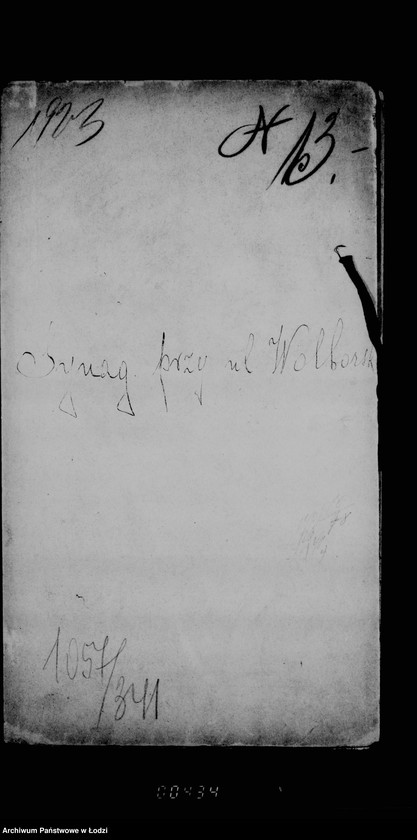 1923
N 13.-
Synag. przy ul Wolborsk
1057/341
00434
Archiwum Państwowe w Łodzi